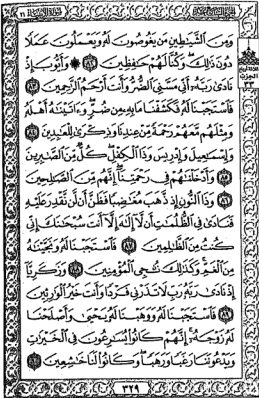 وَمِنَ ٱلشَّيَٰطِينِ مَن يَغُوصُونَ لَهُۥ وَيَعْمَلُونَ عَمَلًا
دُونَ ذَٰلِكَ وَكُنَّا لَهُمْ حَٰفِظِينَ ٨٢ ۞ وَأَيُّوبَ إِذْ
نَادَىٰ رَبَّهُۥٓ أَنِّى مَسَّنِىَ ٱلضُّرُّ وَأَنتَ أَرْحَمُ ٱلرَّٰحِمِينَ ٨٣
فَٱسْتَجَبْنَا لَهُۥ فَكَشَفْنَا مَا بِهِۦ مِن ضُرٍّ وَءَاتَيْنَٰهُ أَهْلَهُۥ
وَمِثْلَهُم مَّعَهُمْ رَحْمَةً مِّنْ عِندِنَا وَذِكْرَىٰ لِلْعَٰبِدِينَ ٨٤
وَإِسْمَٰعِيلَ وَإِدْرِيسَ وَذَا ٱلْكِفْلِ كُلٌّ مِّنَ ٱلصَّٰبِرِينَ
٨٥ وَأَدْخَلْنَٰهُمْ فِى رَحْمَتِنَآ إِنَّهُم مِّنَ ٱلصَّٰلِحِينَ
٨٦ وَذَا ٱلنُّونِ إِذ ذَّهَبَ مُغَٰضِبًا فَظَنَّ أَن لَّن نَّقْدِرَ عَلَيْهِ
فَنَادَىٰ فِى ٱلظُّلُمَٰتِ أَن لَّآ إِلَٰهَ إِلَّآ أَنتَ سُبْحَٰنَكَ إِنِّى
كُنتُ مِنَ ٱلظَّٰلِمِينَ ٨٧ فَٱسْتَجَبْنَا لَهُۥ وَنَجَّيْنَٰهُ
مِنَ ٱلْغَمِّ وَكَذَٰلِكَ نُۨجِى ٱلْمُؤْمِنِينَ ٨٨ وَزَكَرِيَّآ
إِذْ نَادَىٰ رَبَّهُۥ رَبِّ لَا تَذَرْنِى فَرْدًا وَأَنتَ خَيْرُ ٱلْوَٰرِثِينَ
٨٩ فَٱسْتَجَبْنَا لَهُۥ وَوَهَبْنَا لَهُۥ يَحْيَىٰ وَأَصْلَحْنَا
لَهُۥ زَوْجَهُۥٓ إِنَّهُمْ كَانُوا۟ يُسَٰرِعُونَ فِى ٱلْخَيْرَٰتِ
وَيَدْعُونَنَا رَغَبًا وَرَهَبًا وَكَانُوا۟ لَنَا خَٰشِعِينَ ٩٠
٣٢٩